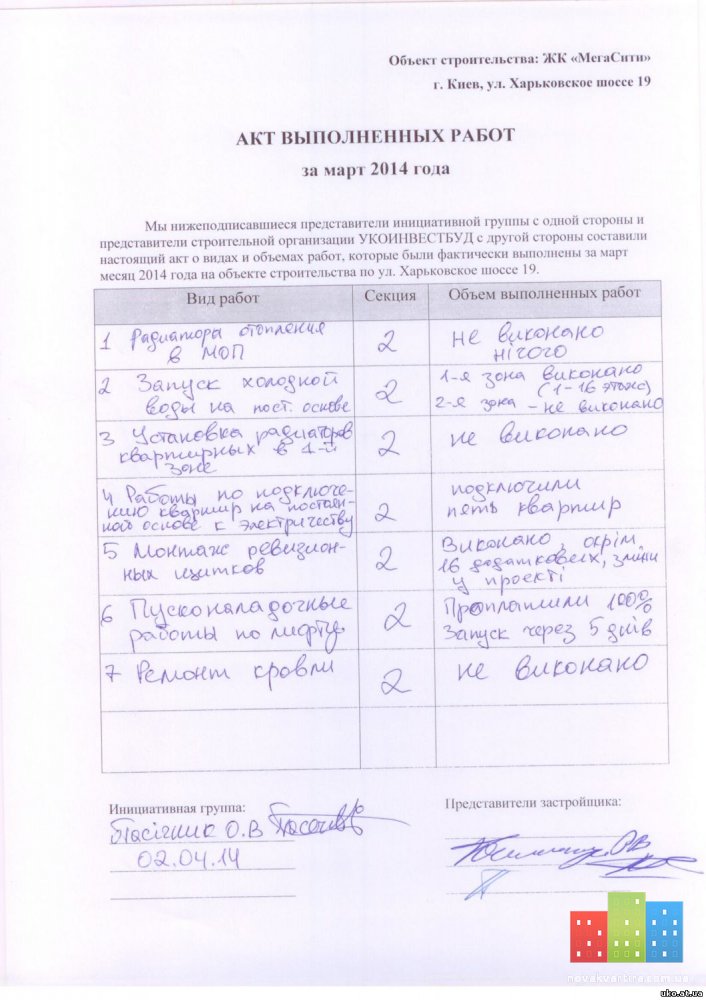 Объект строительства: ЖК «МегаСити»
г. Киев, ул. Харьковское шоссе 19
АКТ ВЫПОЛНЕННЫХ РАБОТ
за март 2014 года
Мы нижеподписавшиеся представители инициативной группы с одной стороны и
представители строительной организации УКОИНВЕСТБУД с другой стороны составили
настоящий акт о видах и объемах работ, которые были фактически выполнены за март
месяц 2014 года на объекте строительства по ул. Харьковское шоссе 19.
Вид работ Секция Объем выполненных работ
1 Радиаторы отопления
в МОП
2
не виконано
нічого
2 Запуск холодной
воды на пост. основе
2
1-я зона виконано
(1-16 этаж)
2-я зона - не виконано
3 Установка радиаторов
квартирных в 1-й
зоне
2
не виконано
4 Работы по подключе-
нию квартир на постоян-
ной основе к электричеству
2
подключили
пять квартир
5 Монтаж ревизион-
ных щитков
2
Виконано, окрім
16 додаткових, зміни
у проекті
6 Пусконаладочные
работы по лифту
2
Проплатили 100%
Запуск через 5 днів
7 Ремонт кровли
2
не виконано
Инициативная группа:
Пасічник О.В
02.04.14
Представители застройщика:
novakvartira.com.ua
uko.at.ua